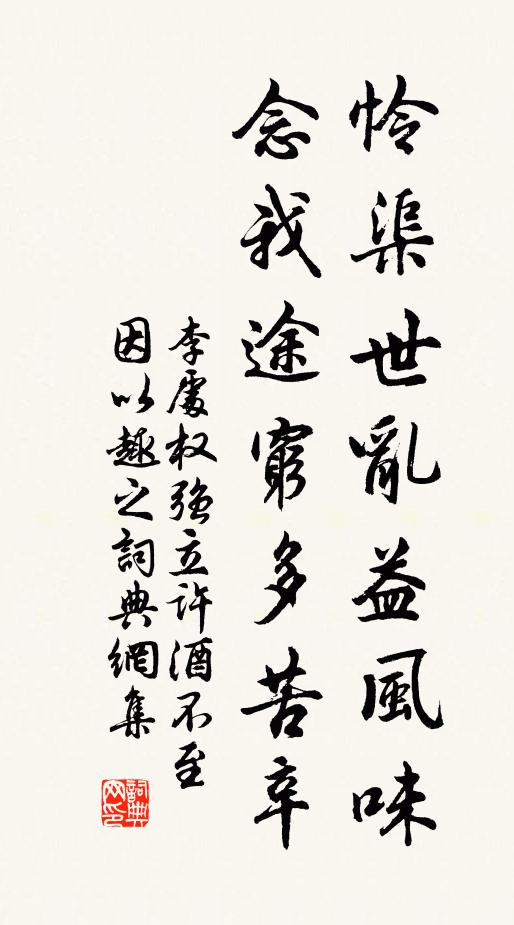 怜渠世亂益風味
念我途窮多苦辛
李處权強立許酒不至
因以趣之詞典網集
詞典网印